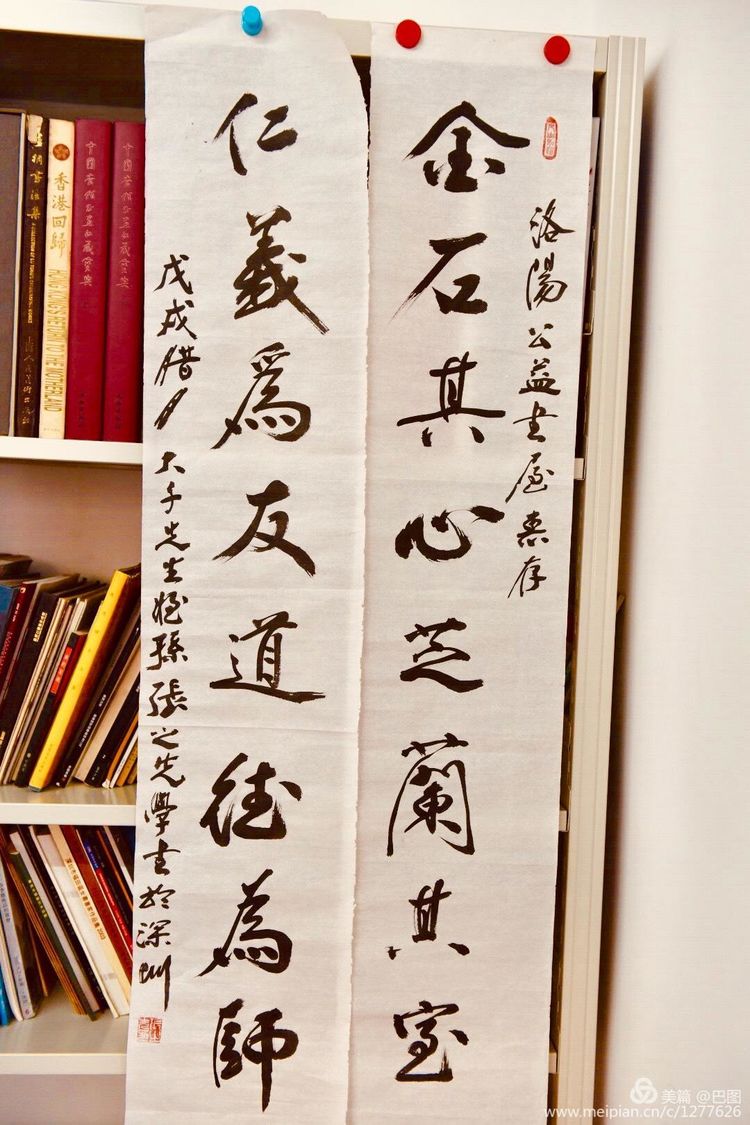 洛陽公益書屋惠存
金石其心芝蘭其室
仁義為友道德為師
戊戌腊月 大千先生姪孫張之先學書於深圳
香港回歸
HONG KONG'S RETURN TO THE MOTHERLAND
美篇 @巴图
www.meipian.cn/c/1277626